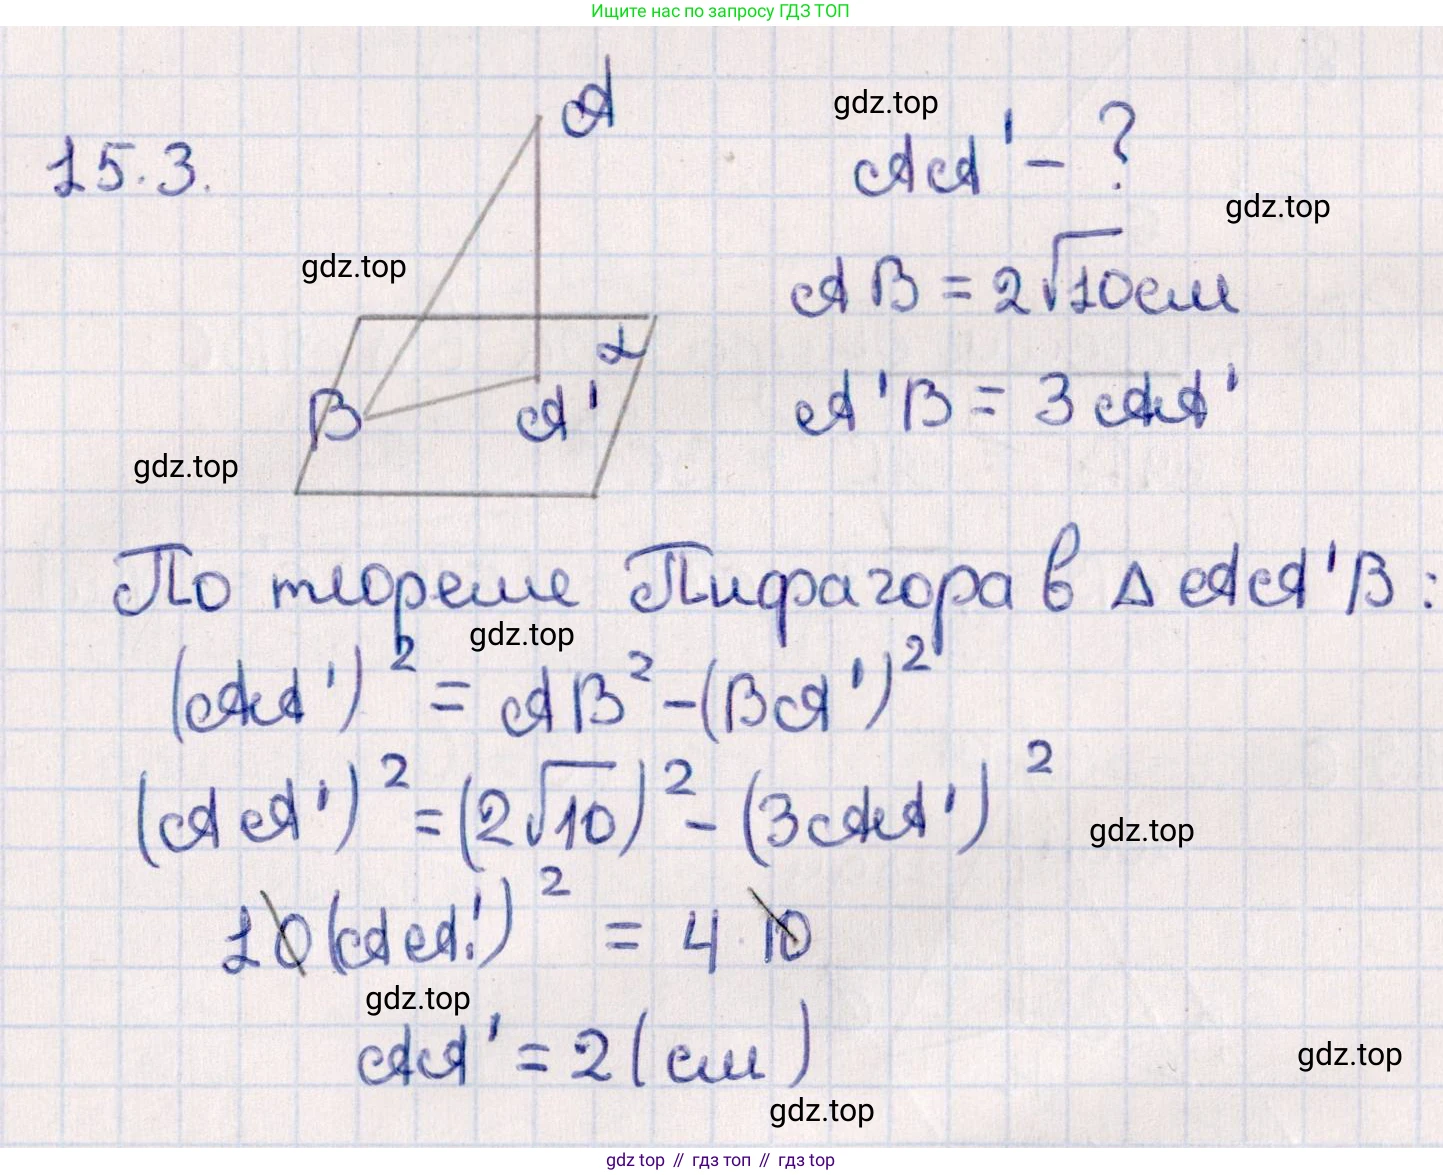 Ищите нас по запросу ГДЗ ТОП
15.3.
A
gdz.top
AA' - ?
gdz.top
gdz.top
AB = 2√10 см
α
B
A'
A'B = 3AA'
gdz.top
По теореме Пифагора в ΔAA'B:
gdz.top
(AA')² = AB² - (BA')²
(AA')² = (2√10)² - (3AA')²
gdz.top
10(AA')² = 4 · 10
gdz.top
AA' = 2 (см)
gdz.top
gdz.top
gdz top // гдз топ // гдз top